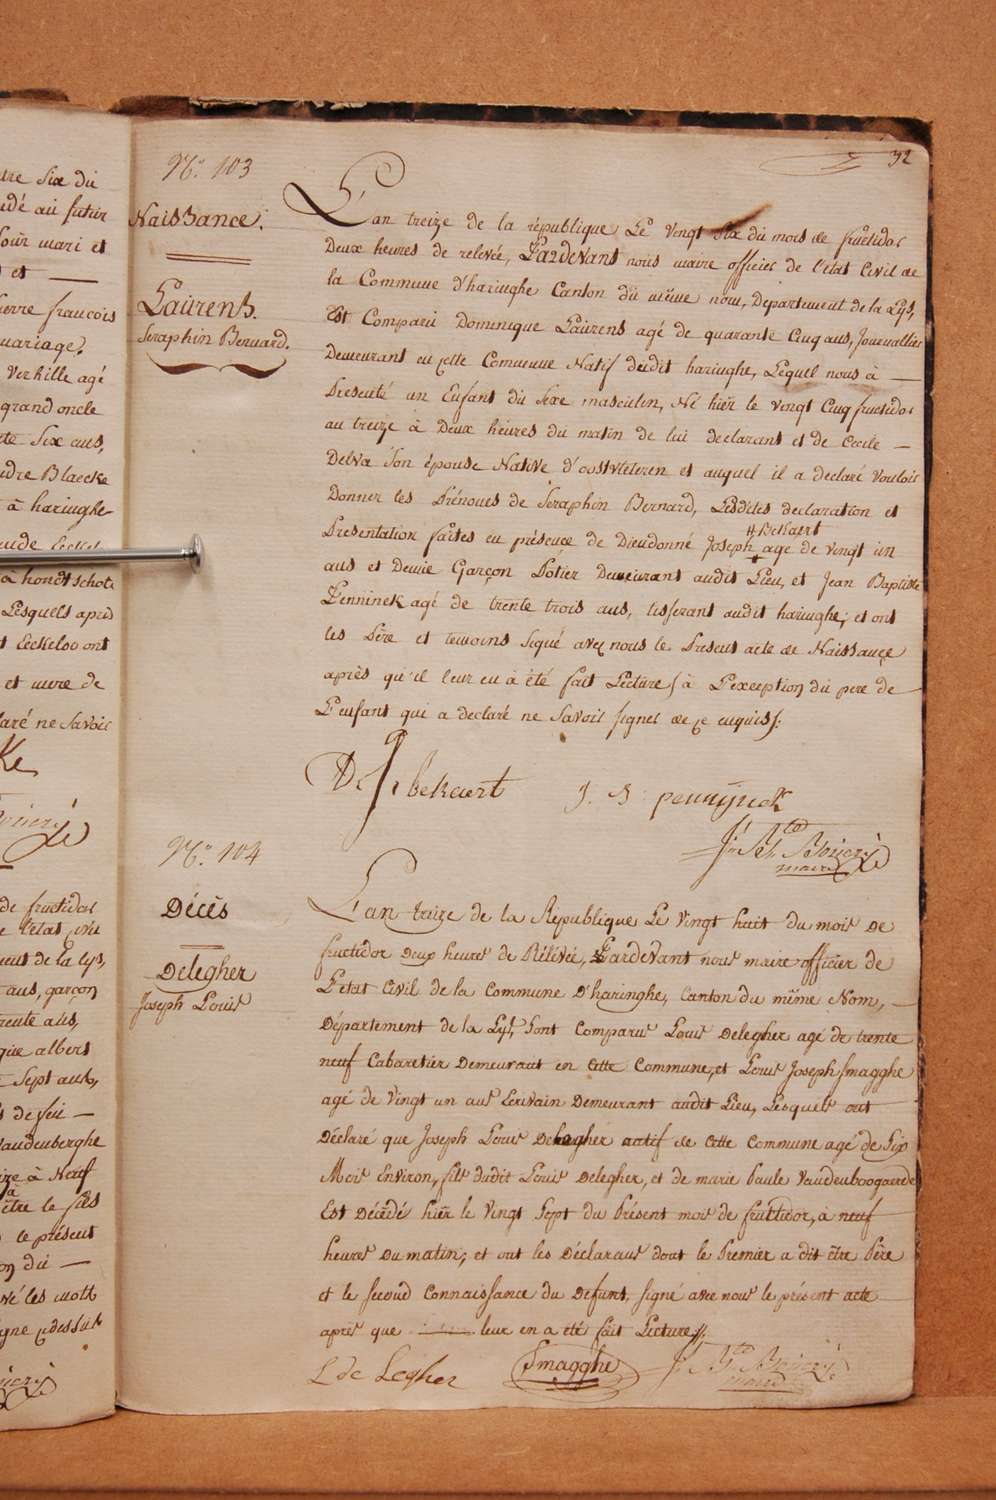 tre Six du
édé au futur
Soùr mari et
et
ierre francois
mariage.
Verhille agé
grand oncle
te Six aus,
ndre Blaecke
à haringhe
à hondtschote
Lesquels après
t Eeckeloo ont
et mere de
laré ne Savoir
de fructidor
e l'etat civil
ment de la Lys,
aus, garçon
rente aus,
que albers
Sept aus,
de foi
Vandenberghe
ize à Neuf
être le fils
le présent
on du
vé les mots
igne cydessus
32
No. 103
Naissance.
Laurens.
Seraphin Bernard.
L'an treize de la république Le Vingt Six du mois de fructidor
Deux heures de relevée, Pardevant nous maire officier de l'etat Civil de
la Commune d'haringhe Canton du même nom, Departement de la Lys,
Est Comparu Dominique Laurens agé de quarante Cinq ans, Journallier
Demeurant en cette Commune Natif dudit haringhe, Lequel nous à
Presenté un Enfant du Sexe masculin, Né hier le Vingt Cinq fructidor
an treize à Deux heures du matin de lui declarant et de Cecile
Delva Son épouse Native d'oostvleteren et auquel il a declaré Vouloir
Donner les Prénoms de Seraphin Bernard, Lesdites declaration et
Presentation faites en présence de Dieudonné Joseph # agé de Vingt un
# Bekaert
ans et Demie Garçon Potier Demeurant audit Lieu, et Jean Baptiste
Penninck agé de trente trois ans, tisserant audit haringhe; et ont
les Père et temoins Signé avec nous le Present acte de Naissance
après qu'il leur en à été fait Lecture (à L'exception du pere de
L'enfant qui a declaré ne Savoir Signer de ce enquis).
D. J. bekaert
J. B. pennynck
maire
No. 104
Décès
Delegher
Joseph Louis
L'an treize de la République Le Vingt huit du mois de
fructidor Deux heures de Rélévée, Pardevant nous maire officier de
L'etat Civil de la Commune D'haringhe, Canton du même Nom,
Département de la Lys, Sont Comparus Louis Delegher agé de trente
neuf Cabaretier Demeurant en Cette Commune, et Louis Joseph Smagghe
agé de Vingt un ans Ecrivain Demeurant audit Lieu, Lesquels ont
Déclaré que Joseph Louis Delegher natif de Cette Commune agé de Six
Mois Environ, fils dudit Louis Delegher, et de marie Paule Vandenboogaerde
Est Décédé hier le Vingt Sept du Présent mois de fructidor, à neuf
heures Du matin; et ont les Déclarans dont le Premier a dit être Père
et le second Connaissance du Defunt, signé avec nous le présent acte
après que leur en a été fait Lecture.
L de Legher
Smagghe
maire